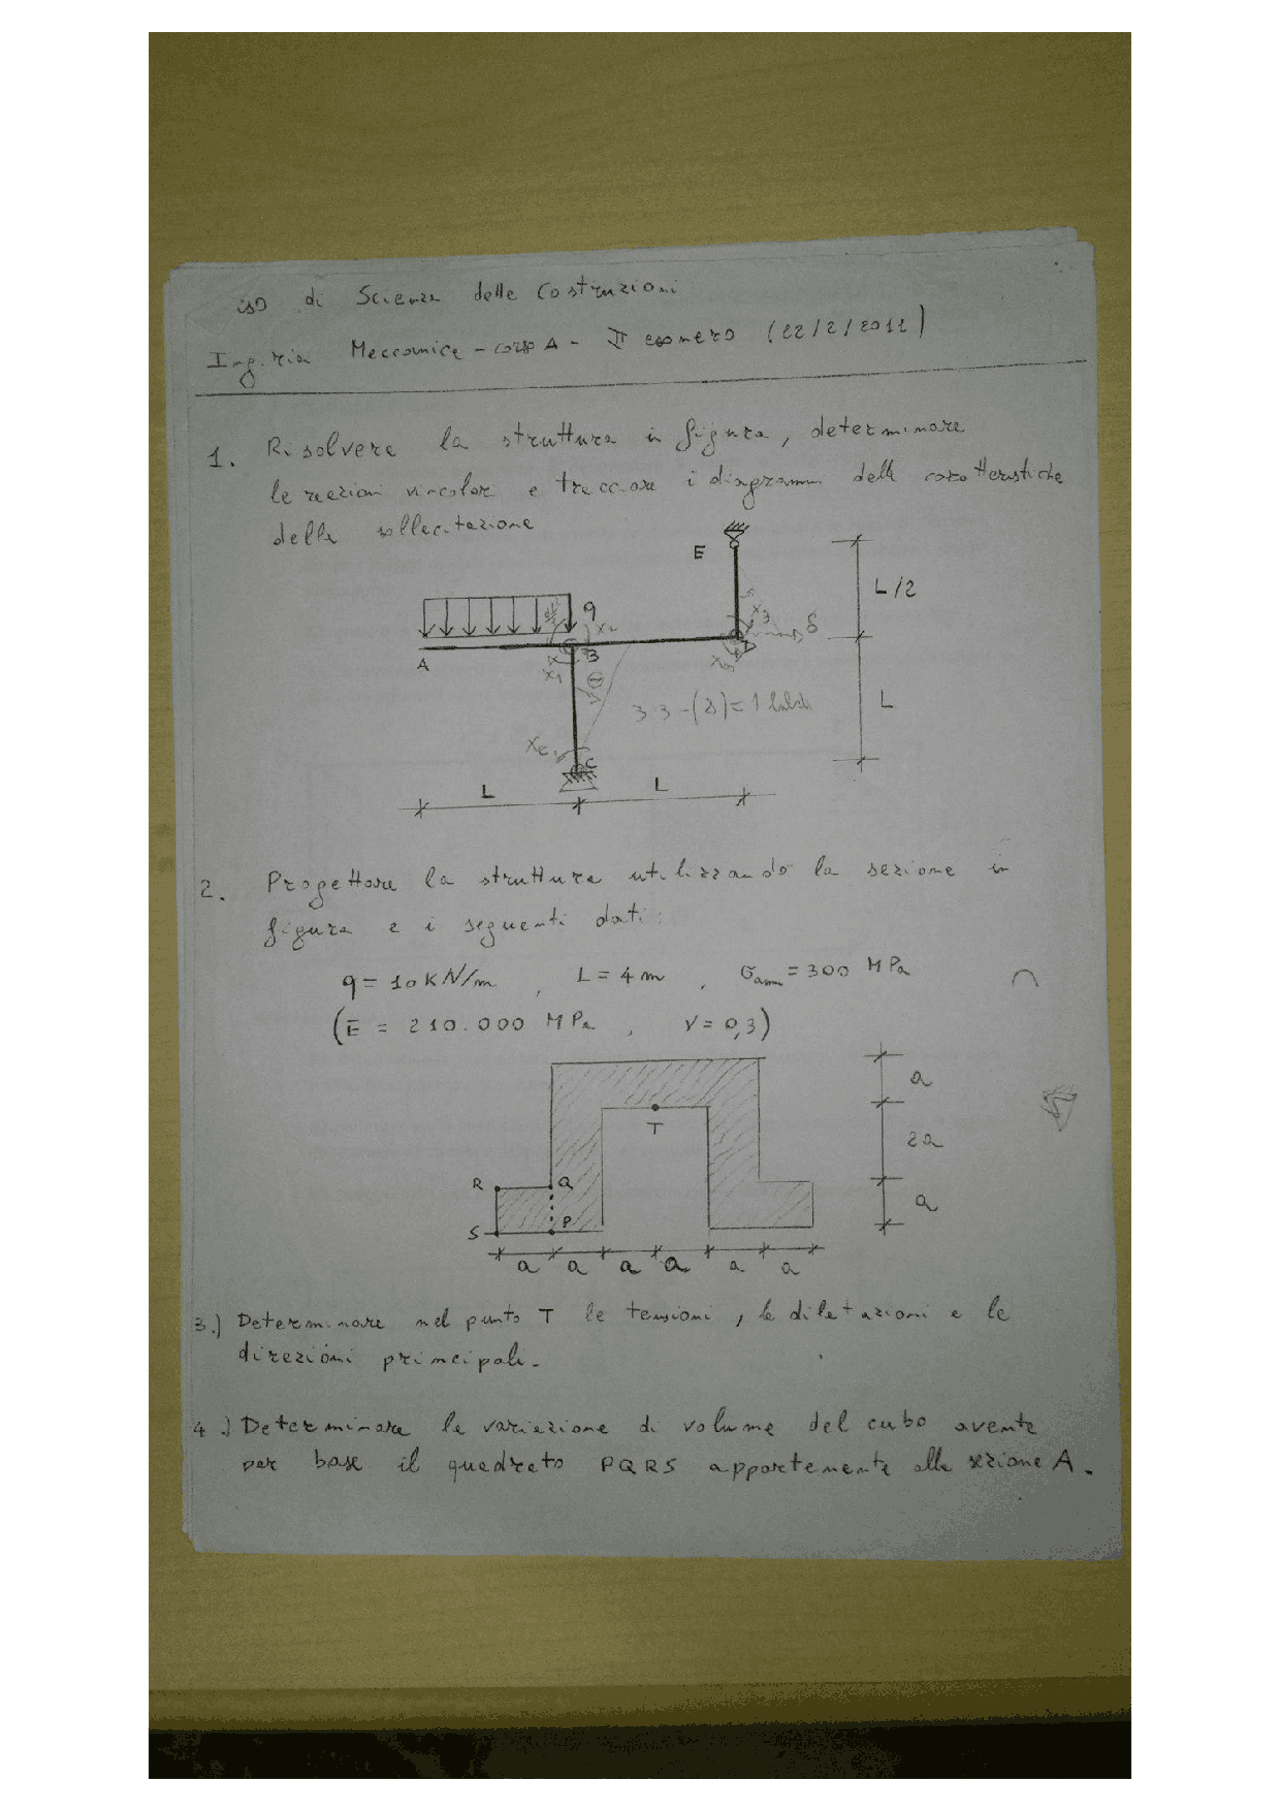 di Scienza delle Costruzioni
Meccanica - corso A - II esonero (22/2/2011)
1. Risolvere la struttura in figura, determinare
le reazioni vincolari e tracciare i diagrammi delle caratteristiche
della sollecitazione
E
L/2
q
A
B
X1
X2
X3
δ
D
L
3·3-(8)=1
C
L
L
2. Progettare la struttura utilizzando la sezione in
figura e i seguenti dati:
q = 10 kN/m , L = 4 m , σamm = 300 MPa
(E = 210.000 MPa , ν = 0,3)
a
T
2a
R
Q
a
S
P
a a a a a a
3.) Determinare nel punto T le tensioni, le dilatazioni e le
direzioni principali.
4.) Determinare la variazione di volume del cubo avente
per base il quadrato PQRS appartenente alla sezione A.